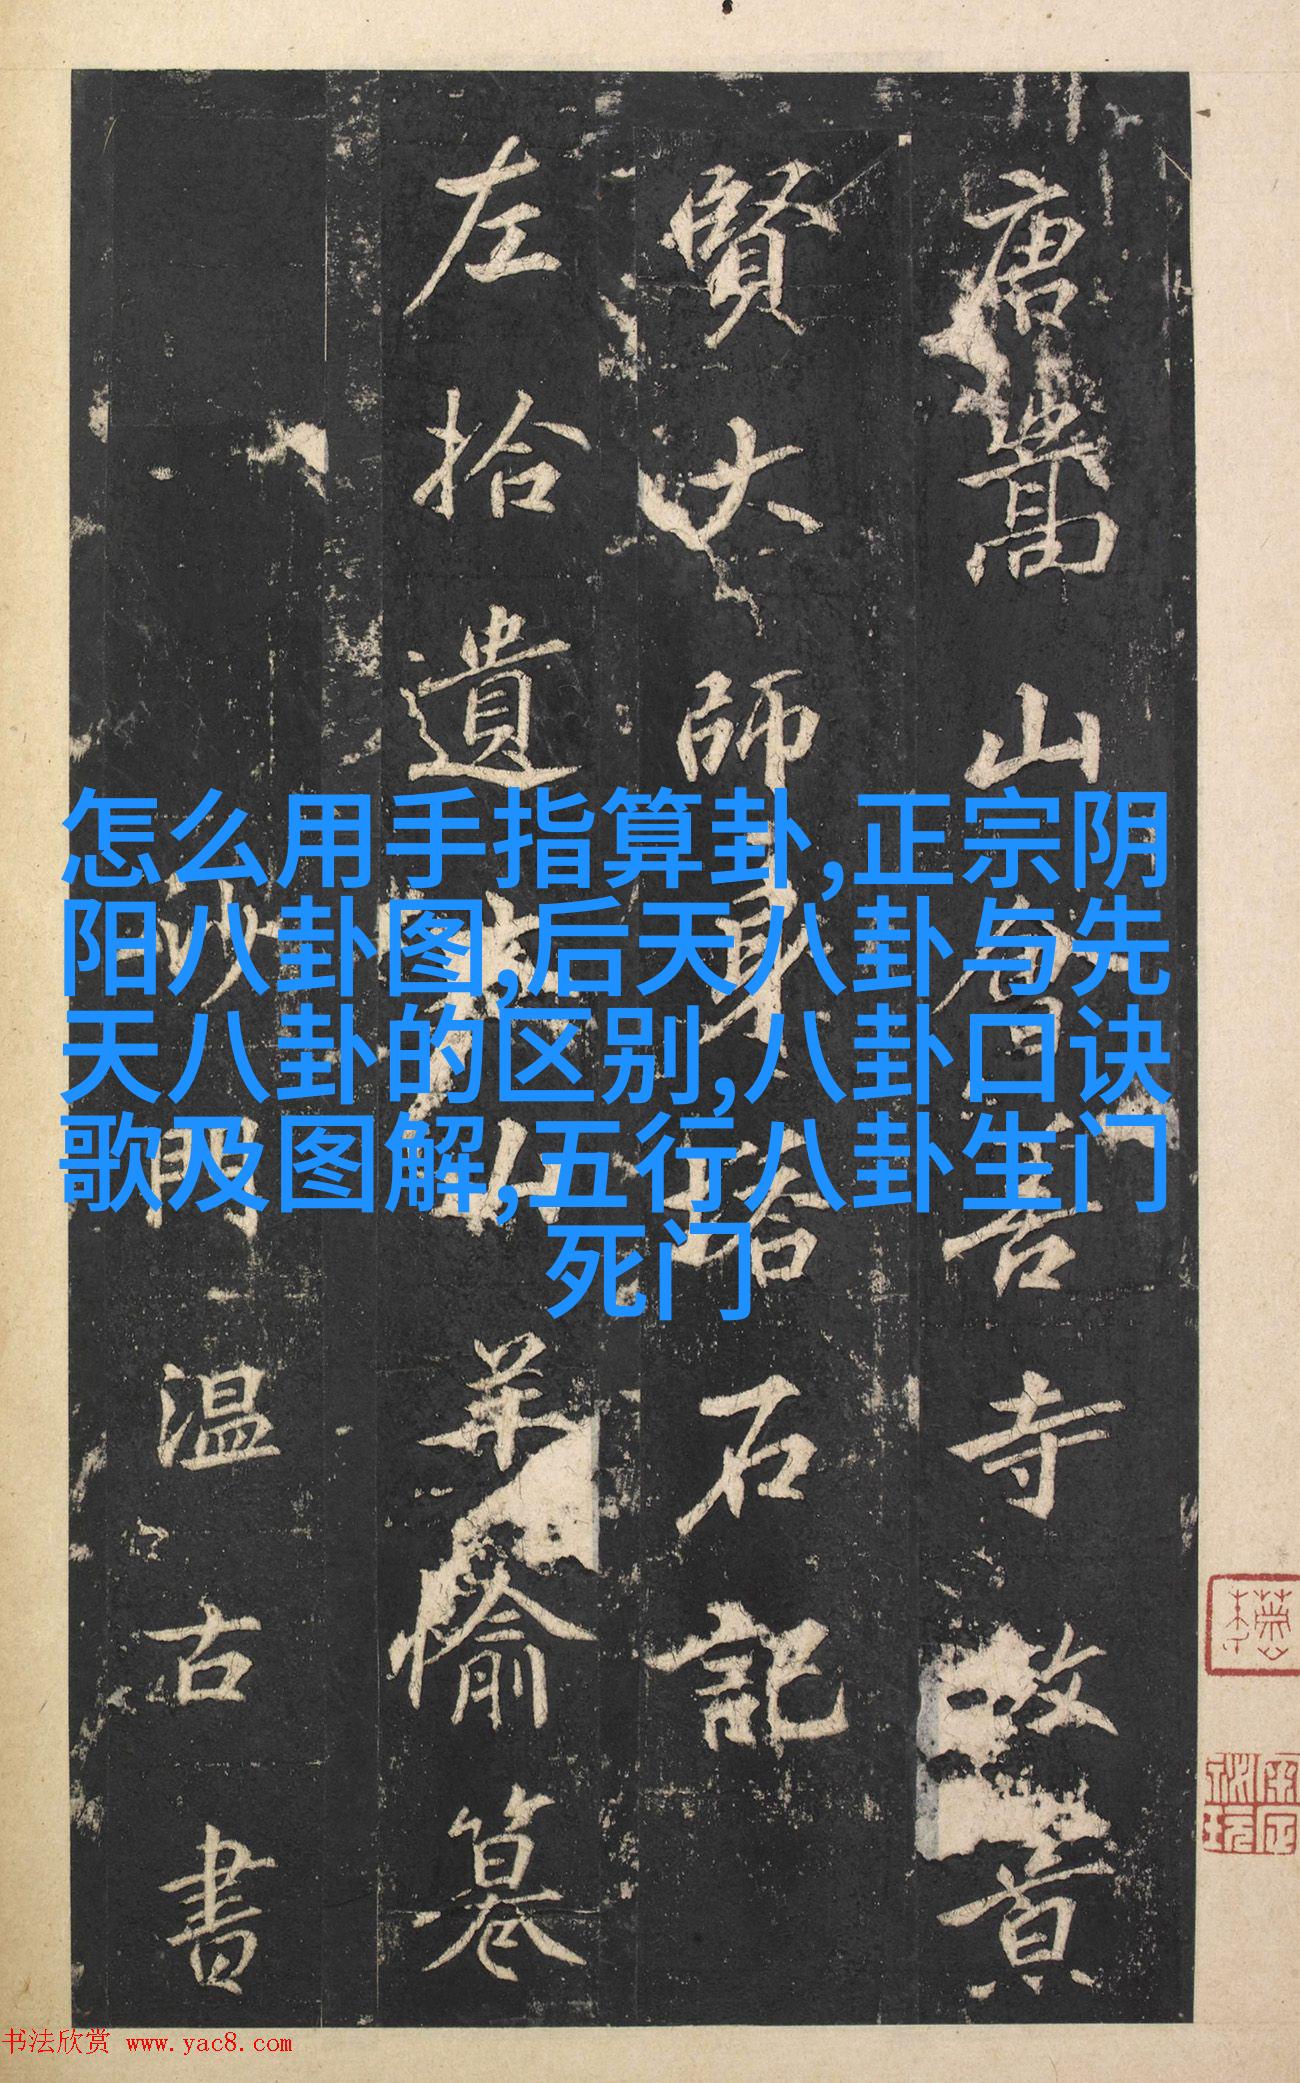 唐嵩山會善寺故景
賢大師身塔石記
左拾遺羊愉纂
沙門温古書
怎么用手指算卦,正宗阴
阳八卦图,后天八卦与先
天八卦的区别,八卦口诀
歌及图解,五行八卦生门
死门
书法欣赏 www.yac8.com